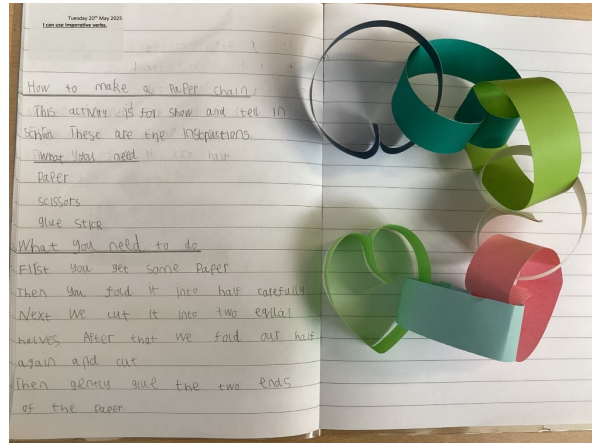 Tuesday 20th May 2025
I can use imperative verbs.
How to make a paper chain
This activity is for show and tell in
These are the Instructions
What you need
paper
scissors
glue stick
What you need to do
First you get some paper
Then you fold it into half carefully
Next we cut it into two equal
halves After that we fold our half
again and cut
Then gently glue the two ends
of the paper